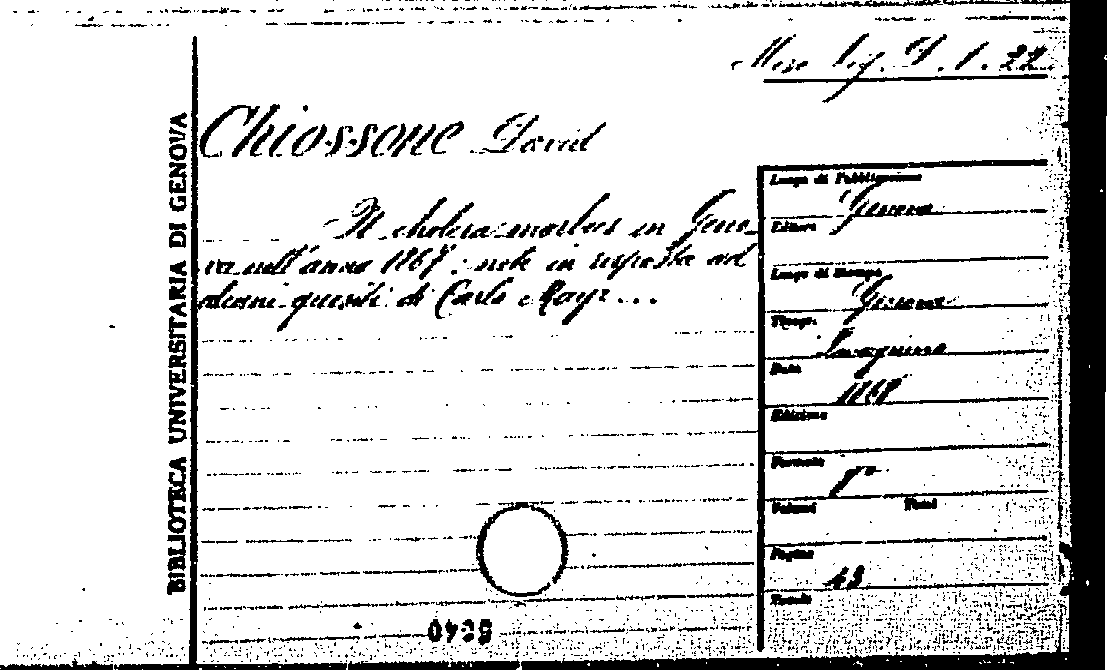 Misc. Lig. D. 1. 22
BIBLIOTECA UNIVERSITARIA DI GENOVA
Chiossone David
Il cholera-morbus in Geno-
va nell'anno 1867: note in risposta ad
alcuni quesiti di Carlo Mayr...
Luogo di Pubblicazione
Genova
Editore
Luogo di Stampa
Genova
Tipogr.
Data
Edizione
Formato
8°
Volumi Tomi
Pagine
43
Tavole